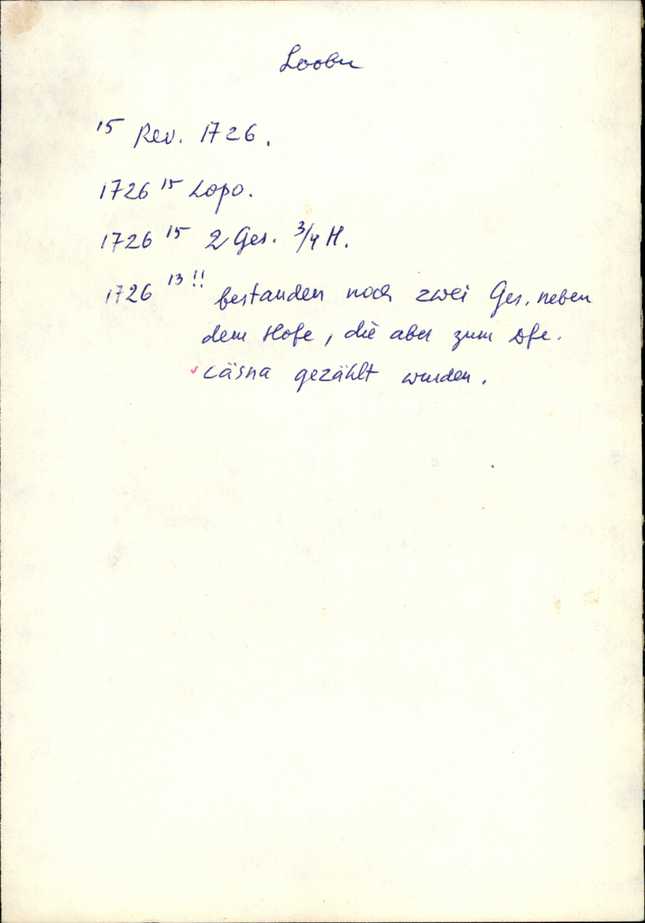 Loobu
15 Rev. 1726.
1726 15 Lopo.
1726 15 2 Ges. 3/4 H.
1726 13!! bestanden noch zwei Ges. neben
dem Hofe, die aber zum Dfe.
Läsna gezählt wurden.